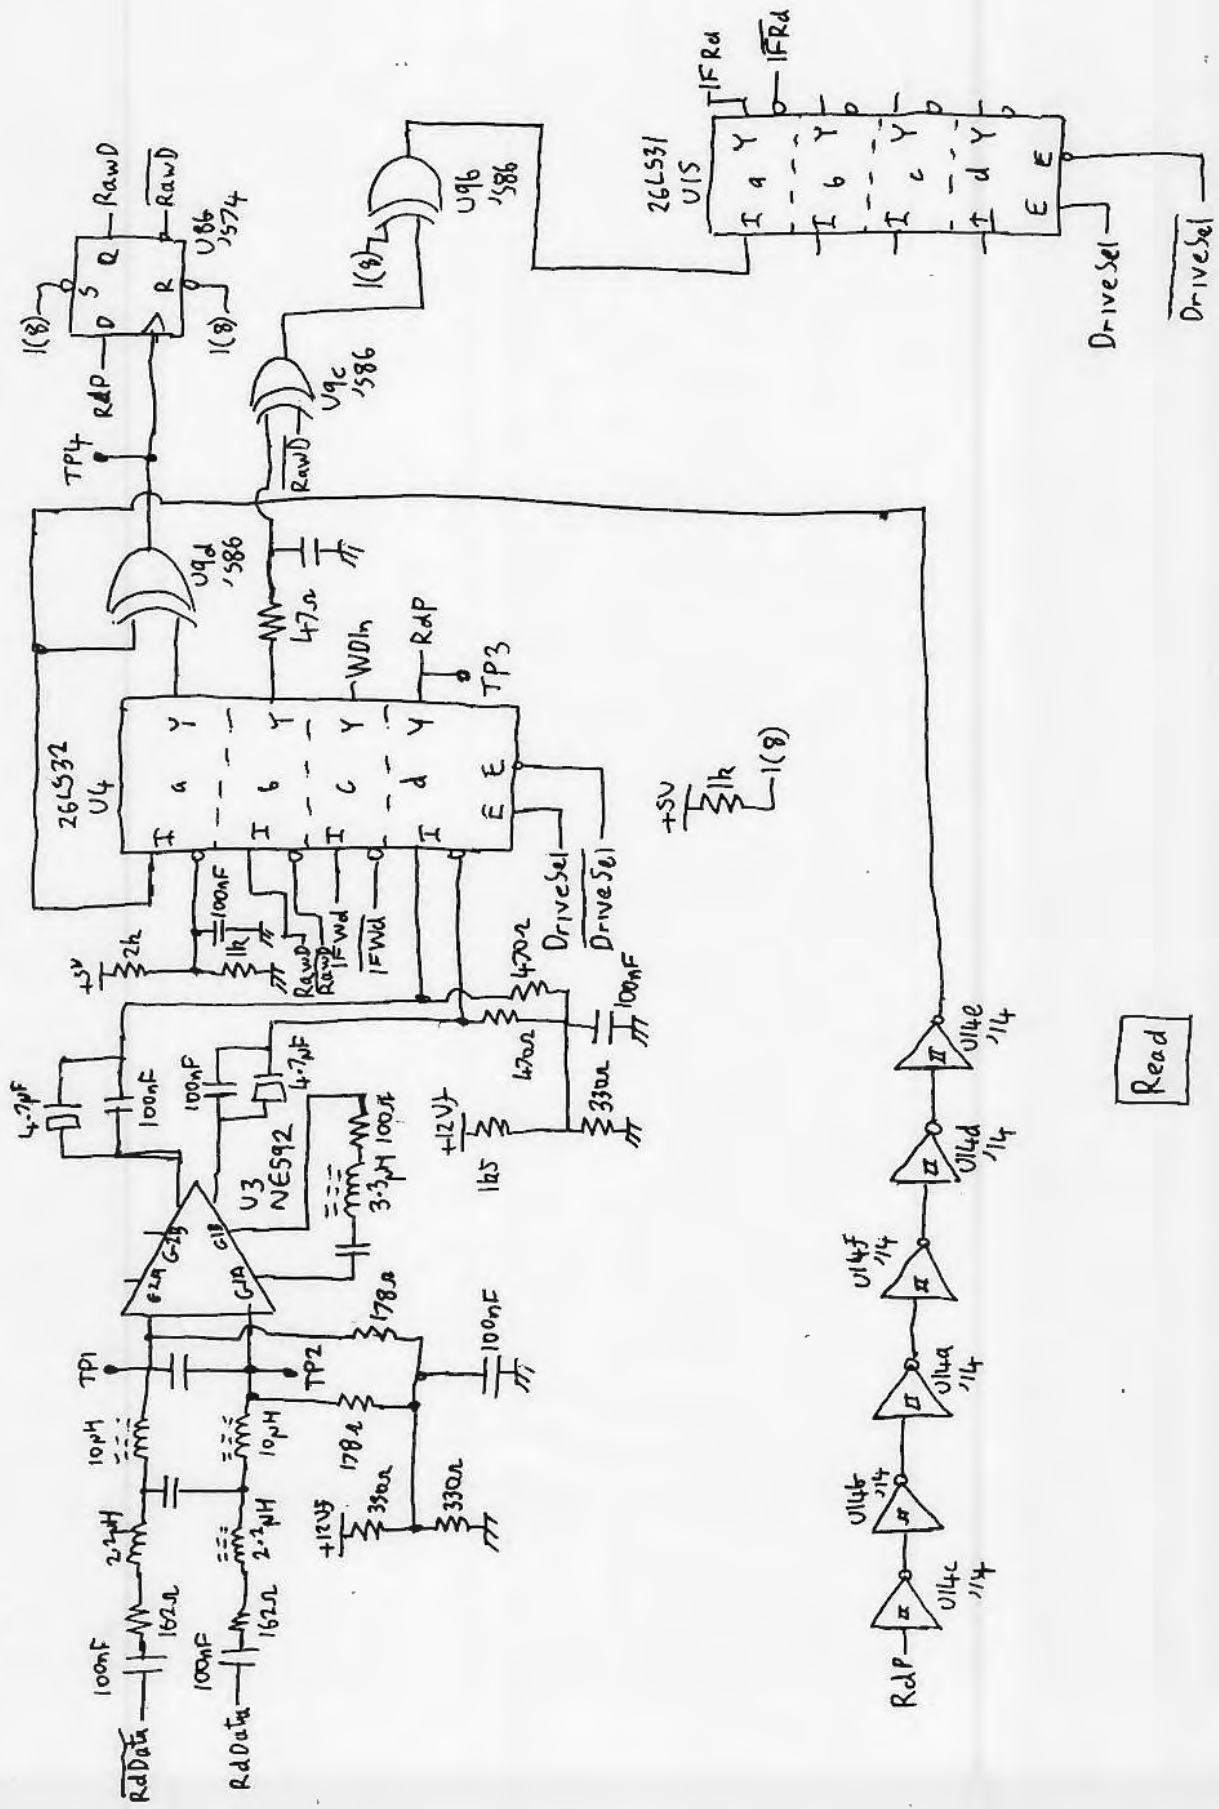 RdData
100nF
162Ω
2.2μH
10μH
TP1
RdData
100nF
162Ω
2.2μH
10μH
TP2
178Ω
178Ω
+12Vf
390Ω
330Ω
100nF
G2A
G2B
G1A
G1B
U3
NE592
3.3μH
100Ω
4.7μF
100nF
100nF
4.7μF
+12Vf
1k5
330Ω
470Ω
470Ω
100nF
+5V
2k
1k
100nF
RawD
RawD
IFWd
IFWd
DriveSel
DriveSel
26LS32
U4
I a Y
I b Y
I c Y
I d Y
E E
WDIn
RdP
TP3
47Ω
U9d
'S86
TP4
RdP
1(8)
D S Q
R
1(8)
RawD
RawD
U8b
'S74
RawD
U9c
'S86
1(8)
U9b
'S86
+5V
1k
1(8)
26LS31
U15
I a Y
I b Y
I c Y
I d Y
E E
IFRd
IFRd
DriveSel
DriveSel
RdP
U14c
'14
U14b
'14
U14a
'14
U14f
'14
U14d
'14
U14e
'14
Read